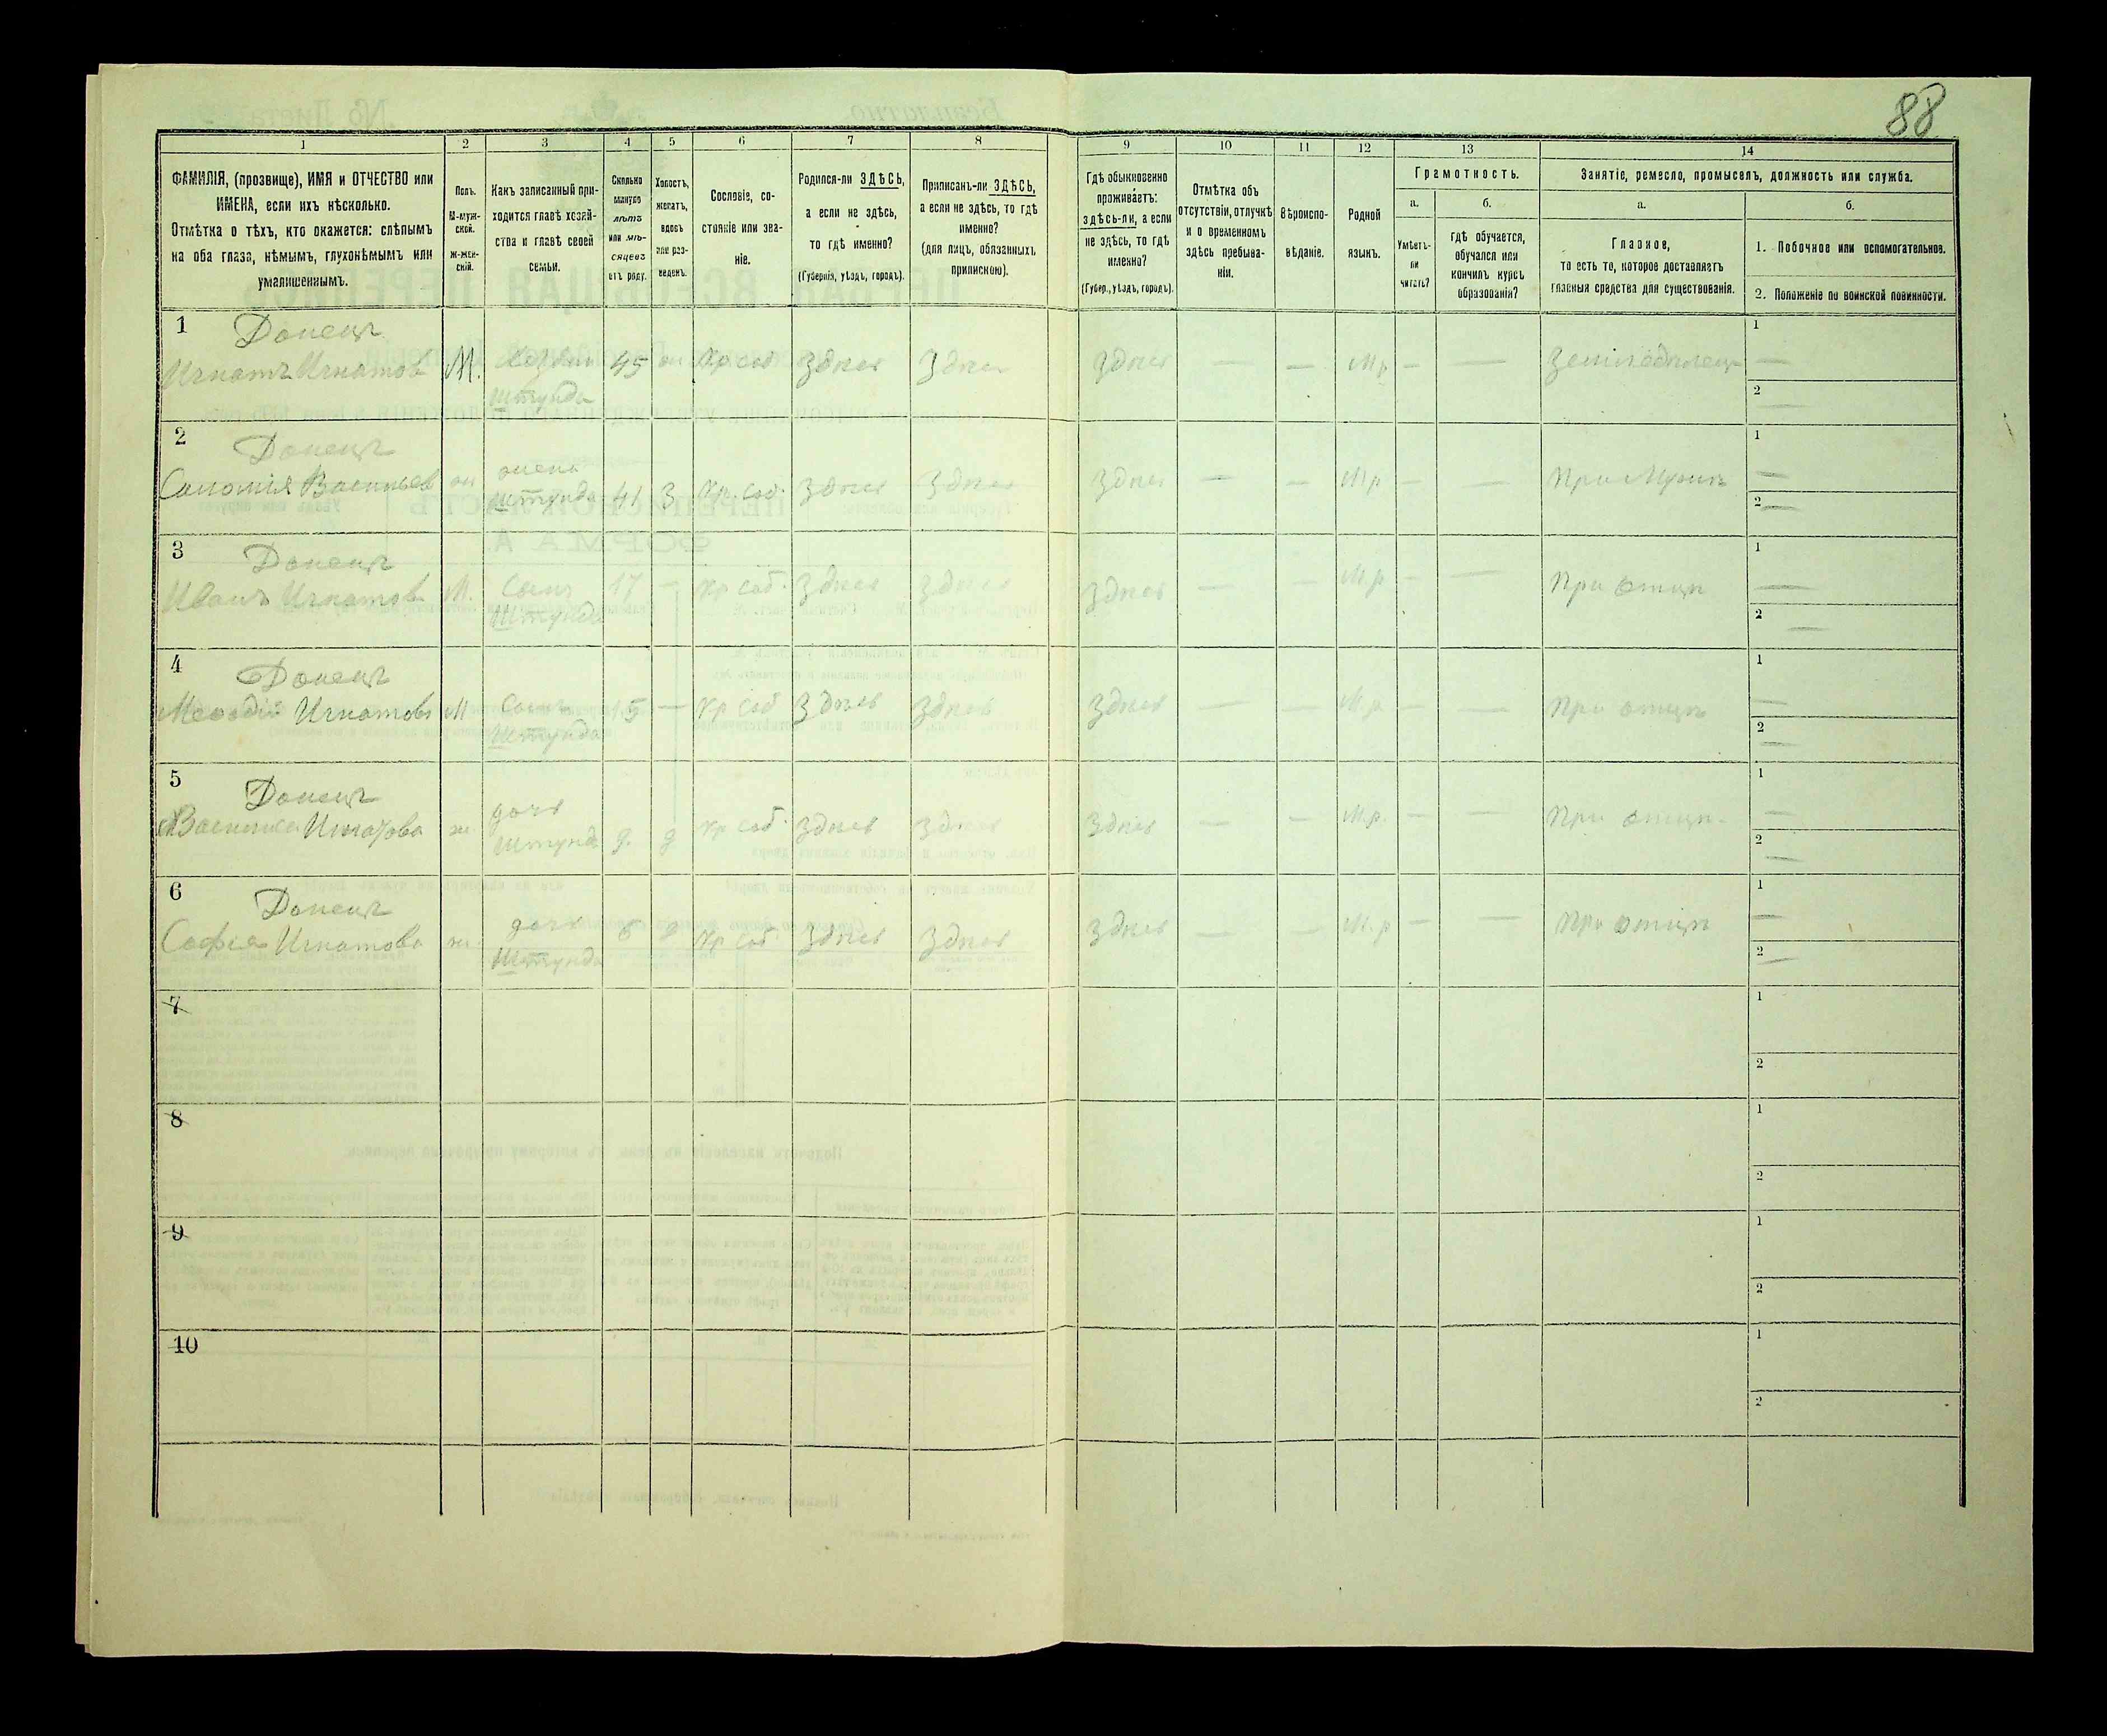 88
1
2
3
4
5
6
7
8
9
10
11
12
13
14
ФАМИЛІЯ, (прозвище), ИМЯ и ОТЧЕСТВО или
ИМЕНА, если ихъ нѣсколько.
Отмѣтка о тѣхъ, кто окажется: слѣпымъ
на оба глаза, нѣмымъ, глухонѣмымъ или
умалишеннымъ.
Полъ.
М-муж-
ской.
Ж-жен-
скій.
Какъ записанный при-
ходится главѣ хозяй-
ства и главѣ своей
семьи.
Сколько
минуло
лѣтъ
или мѣ-
сяцевъ
отъ роду.
Холостъ,
женатъ,
вдовъ
или раз-
веденъ.
Сословіе, со-
стояніе или зва-
ніе.
Родился-ли ЗДѢСЬ,
а если не здѣсь,
то гдѣ именно?
(Губернія, уѣздъ, городъ).
Приписанъ-ли ЗДѢСЬ,
а если не здѣсь, то гдѣ
именно?
(для лицъ, обязанныхъ
припискою).
Гдѣ обыкновенно
проживаетъ:
здѣсь-ли, а если
не здѣсь, то гдѣ
именно?
(Губер., уѣздъ, городъ).
Отмѣтка объ
отсутствіи, отлучкѣ
и о временномъ
здѣсь пребыва-
ніи.
Вѣроиспо-
вѣданіе.
Родной
языкъ.
Грамотность.
а.
Умѣетъ-
ли
читать?
б.
гдѣ обучается,
обучался или
кончилъ курсъ
образованія?
Занятіе, ремесло, промыселъ, должность или служба.
а.
Главное,
то есть то, которое доставляетъ
главныя средства для существованія.
б.
1. Побочное или вспомогательное.
2. Положеніе по воинской повинности.
1 Донецъ
Игнатъ Игнатов М. Хозяин 45 Кр соб здѣсь здѣсь здѣсь — — М р — — Земледѣлецъ 1 —
Штунда 2 —
2 Донецъ 1 —
Соломія Васильев жена 41 З Кр. соб. здѣсь здѣсь здѣсь — — М р — — При Мужѣ
штунда 2 —
3 Донецъ 1 —
Иванъ Игнатов М. Сынъ 17 — Кр соб. здѣсь здѣсь здѣсь — — М.р — — При отцѣ
Штунда 2 —
4 Донецъ 1 —
Мефодій Игнатовъ М Сынъ 15 — Кр соб здѣсь здѣсь здѣсь — — М.р — — При отцѣ
Штунда 2 —
5 Донецъ 1 —
Игнатова ж. дочь 9. д Кр соб. здѣсь здѣсь здѣсь — — М.р. — — При отцѣ
штунд 2 —
6 Донецъ 1 —
Софія Игнатова ж. дочь 6 д Кр соб здѣсь здѣсь здѣсь — — М.р — — При отцѣ
Штунда 2 —
7 1
2
8 1
2
9 1
2
10 1
2